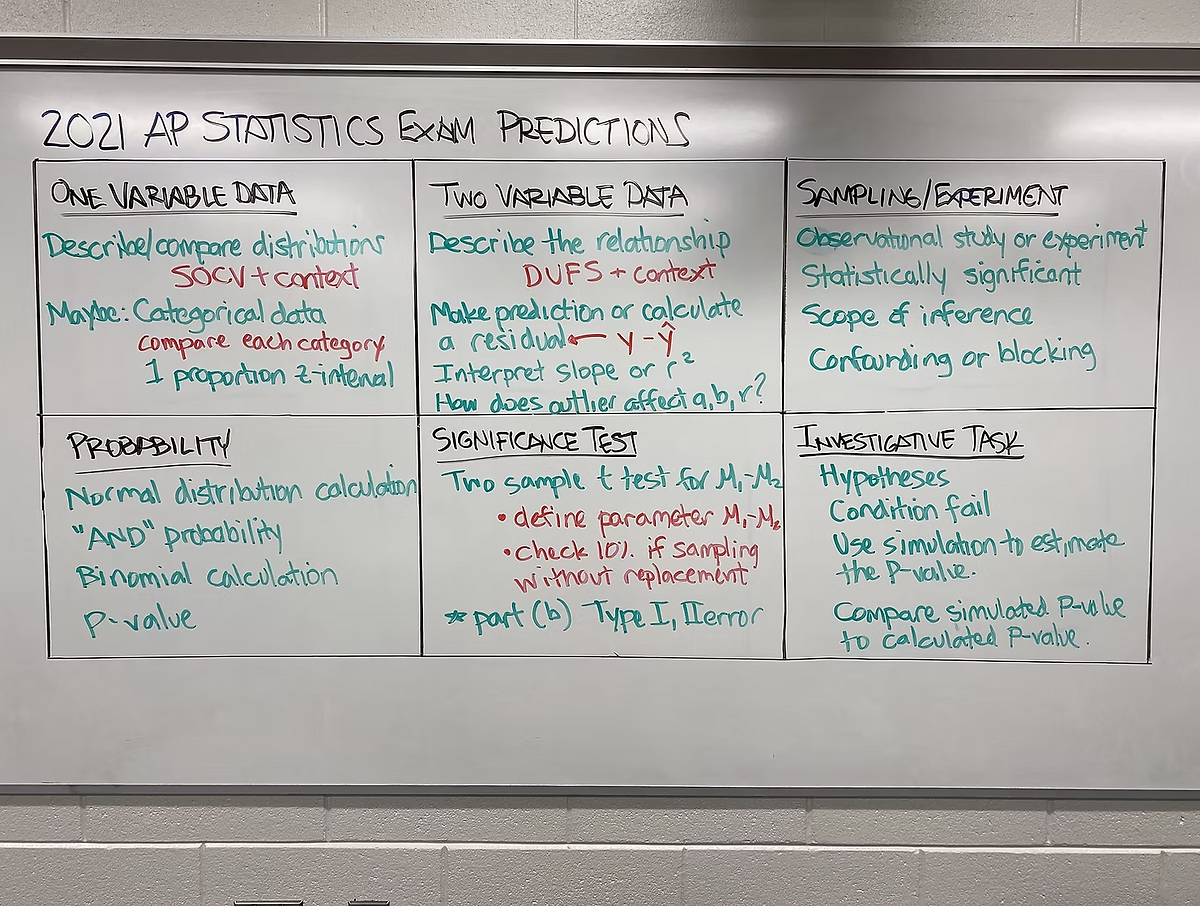 2021 AP STATISTICS EXAM PREDICTIONS
ONE VARIABLE DATA
Describe/compare distributions
SOCV + context
Maybe: Categorical data
compare each category
1 proportion z-interval
TWO VARIABLE DATA
Describe the relationship
DUFS + context
Make prediction or calculate
a residual ← y - ŷ
Interpret slope or r²
How does outlier affect a, b, r?
SAMPLING/EXPERIMENT
Observational study or experiment
Statistically significant
Scope of inference
Confounding or blocking
PROBABILITY
Normal distribution calculation
"AND" probability
Binomial calculation
P-value
SIGNIFICANCE TEST
Two sample t test for M₁-M₂
• define parameter M₁-M₂
• check 10% if sampling
without replacement
* part (b) Type I, II error
INVESTIGATIVE TASK
Hypotheses
Condition fail
Use simulation to estimate
the P-value.
Compare simulated P-value
to calculated P-value.